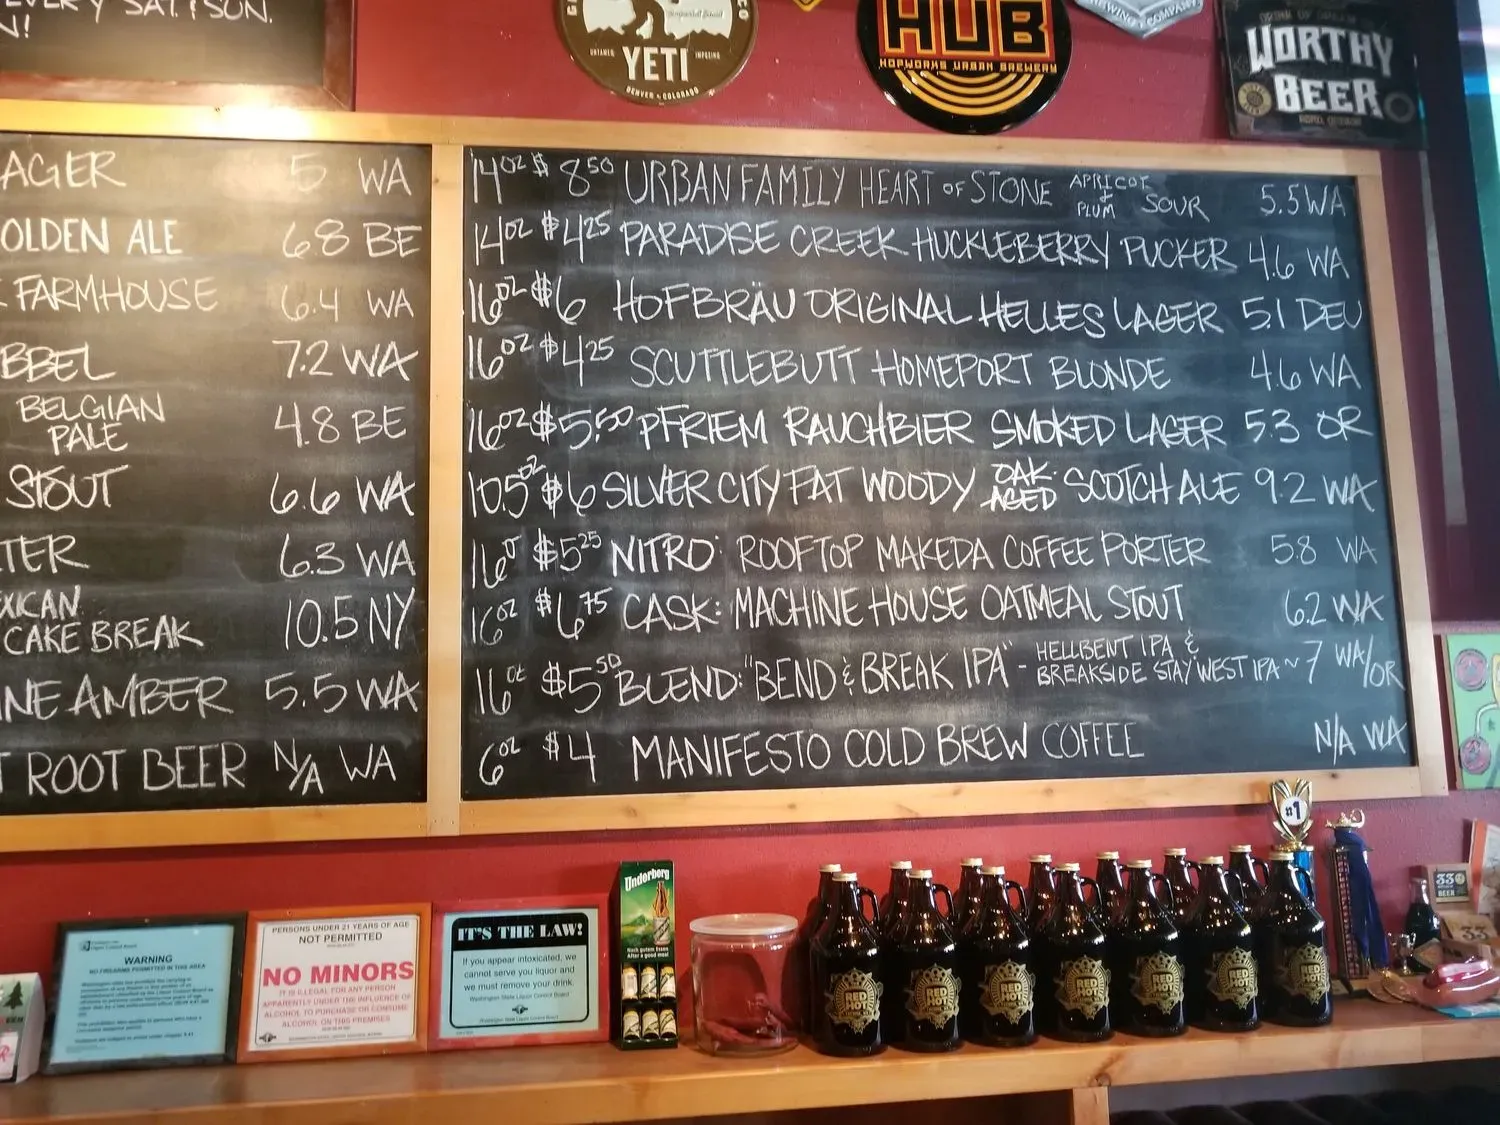 EVERY SAT. & SUN.
N!
YETI
Imperial Stout
UNTAMED IMPOSING
DENVER • COLORADO
HUB
HOPWORKS URBAN BREWERY
BREWING COMPANY
WORTHY
BEER
AGER 5 WA
OLDEN ALE 6.8 BE
FARMHOUSE 6.4 WA
BBEL 7.2 WA
BELGIAN
PALE 4.8 BE
STOUT 6.6 WA
TER 6.3 WA
XICAN
CAKE BREAK 10.5 NY
NE AMBER 5.5 WA
T ROOT BEER N/A WA
14OZ $8.50 URBAN FAMILY HEART OF STONE APRICOT & PLUM SOUR 5.5 WA
14OZ $4.25 PARADISE CREEK HUCKLEBERRY PUCKER 4.6 WA
16OZ $6 HOFBRÄU ORIGINAL HELLES LAGER 5.1 DEU
16OZ $4.25 SCUTTLEBUTT HOMEPORT BLONDE 4.6 WA
16OZ $5.50 PFRIEM RAUCHBIER SMOKED LAGER 5.3 OR
10.5OZ $6 SILVER CITY FAT WOODY OAK-AGED SCOTCH ALE 9.2 WA
16OZ $5.25 NITRO: ROOFTOP MAKEDA COFFEE PORTER 5.8 WA
16OZ $6.75 CASK: MACHINE HOUSE OATMEAL STOUT 6.2 WA
16OZ $5.50 BLEND: "BEND & BREAK IPA" - HELLBENT IPA & BREAKSIDE STAY WEST IPA ~7 WA/OR
6OZ $4 MANIFESTO COLD BREW COFFEE N/A WA
#1
WARNING
NO FIREARMS PERMITTED IN THIS AREA
PERSONS UNDER 21 YEARS OF AGE
NOT PERMITTED
NO MINORS
IT IS ILLEGAL FOR ANY PERSON
APPARENTLY UNDER THE INFLUENCE OF
ALCOHOL TO PURCHASE OR CONSUME
ALCOHOL ON THIS PREMISES
IT'S THE LAW!
If you appear intoxicated, we
cannot serve you liquor and
we must remove your drink.
Washington State Liquor Control Board
Underberg
Nach gutem Essen
After a good meal
RED HOT
RED HOT
RED HOT
RED HOT
RED HOT
RED HOT
RED HOT
33
BEER
33